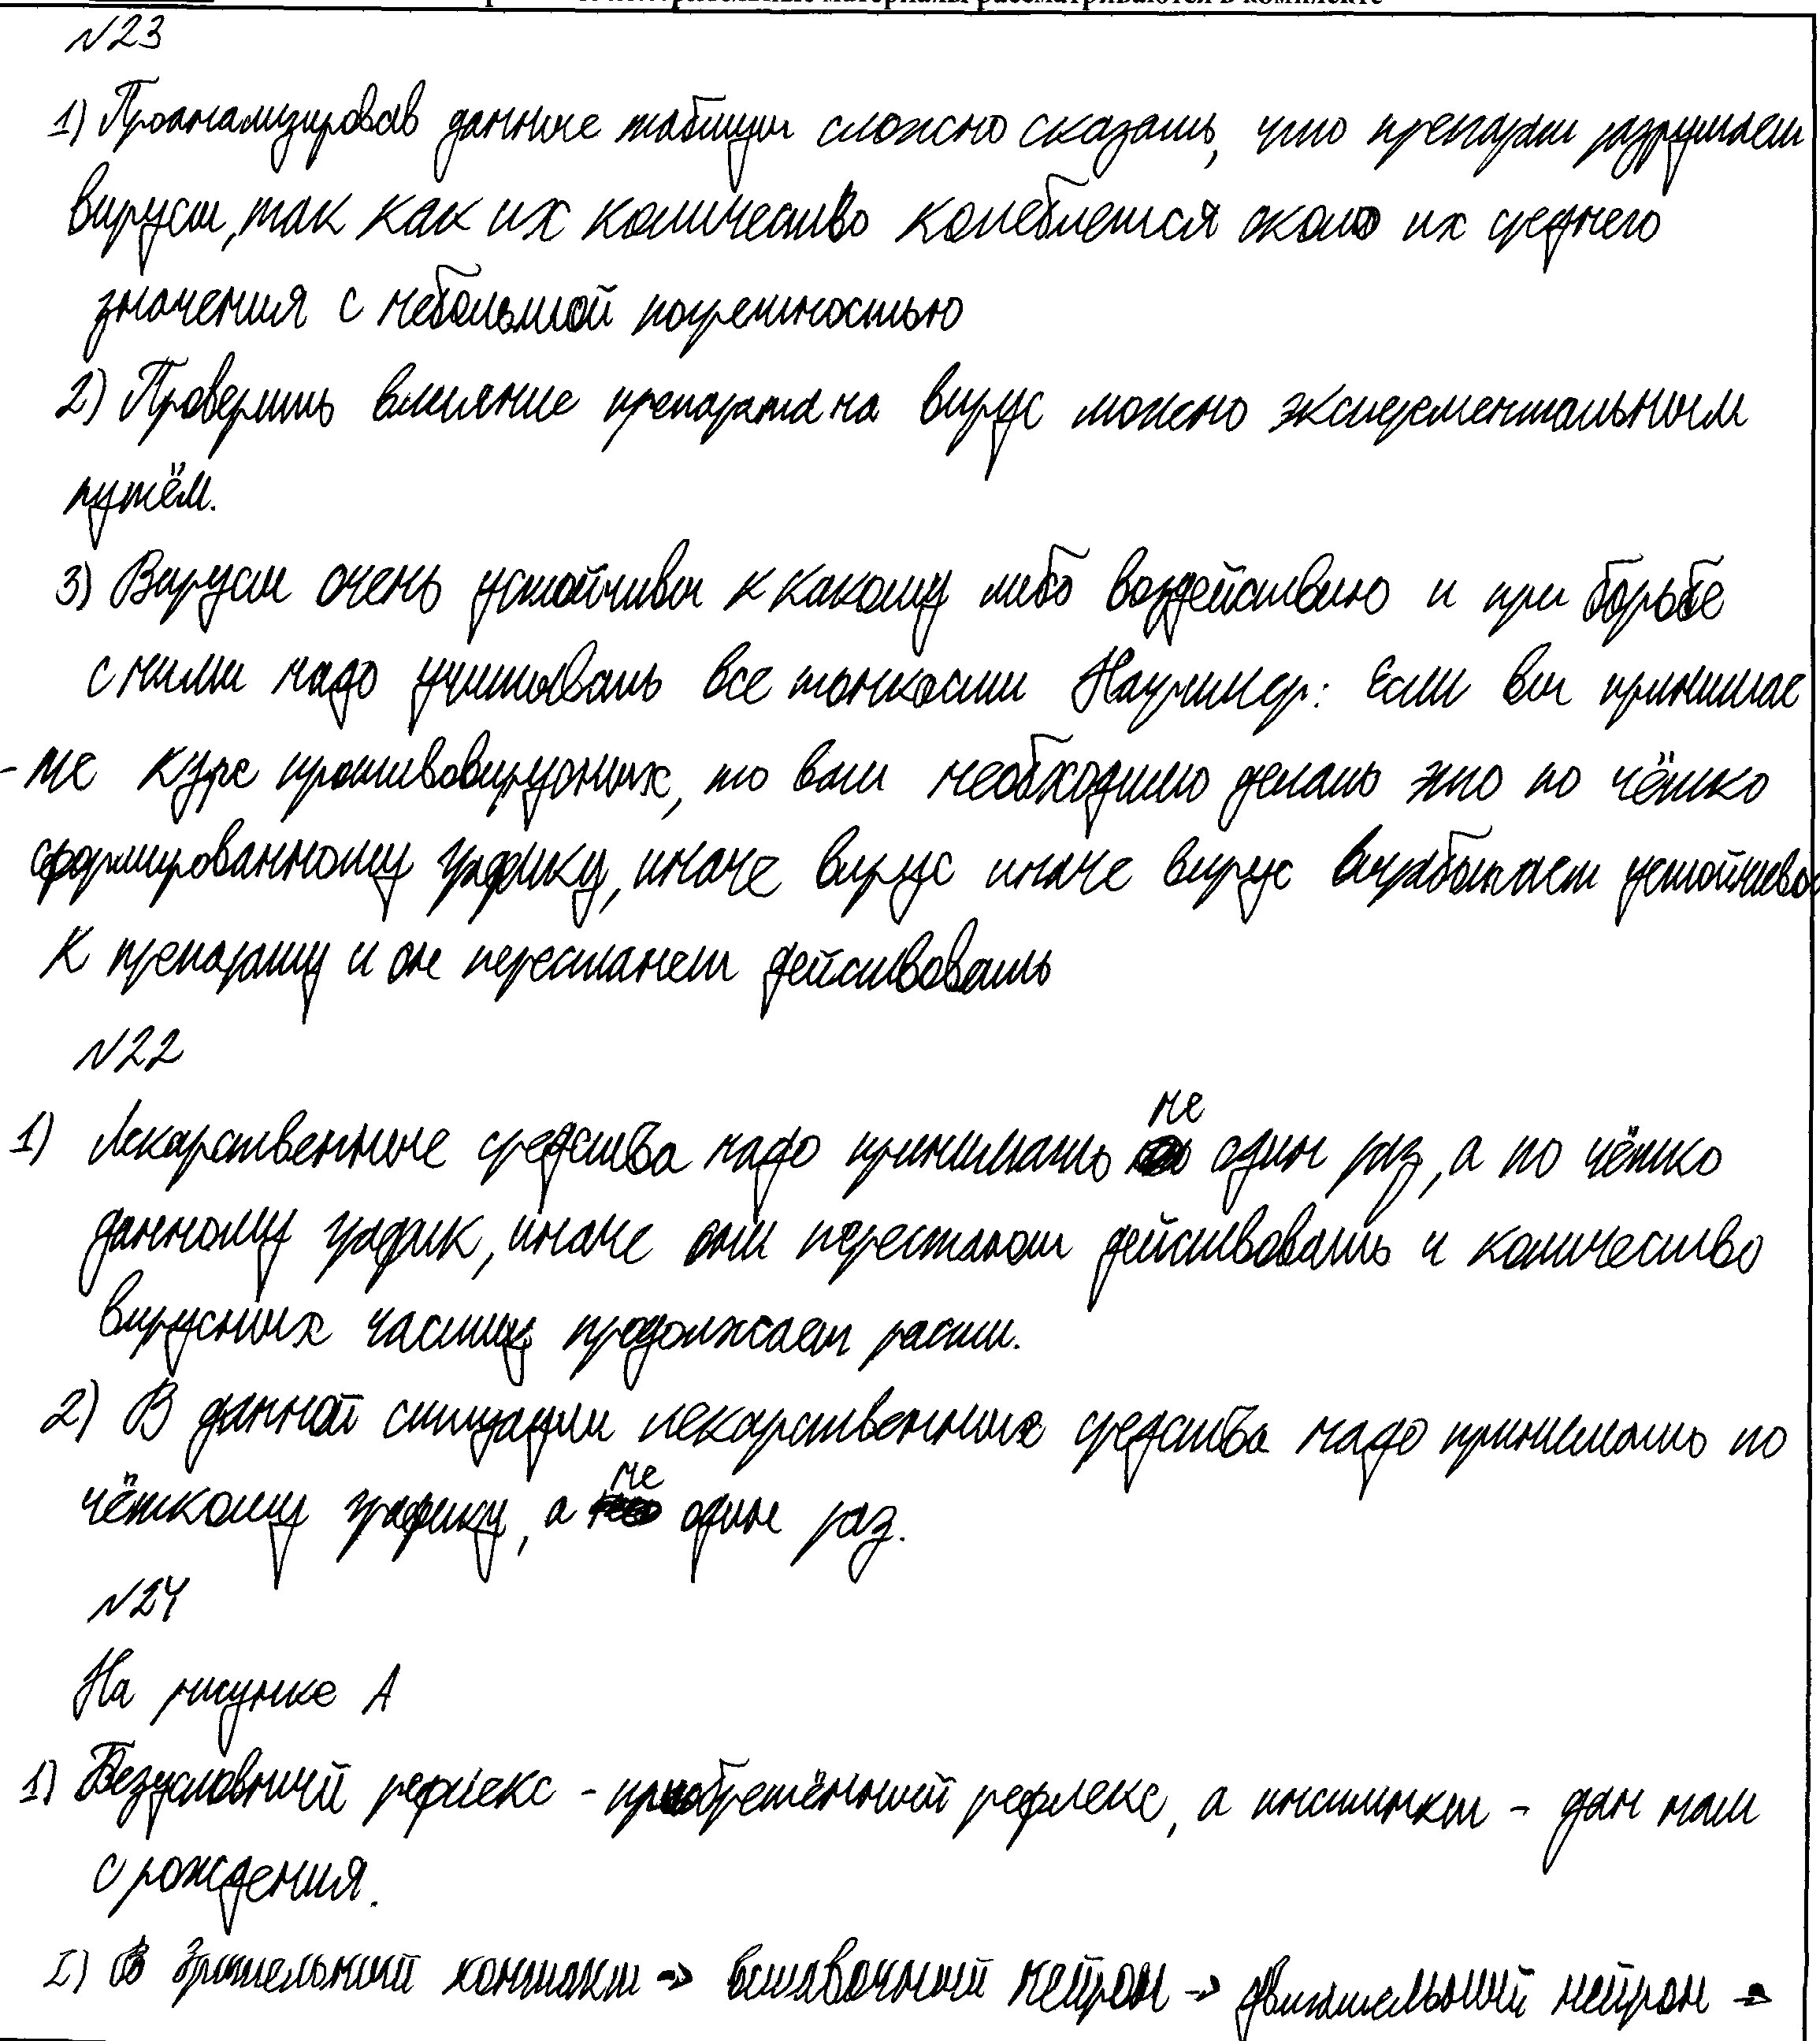 №23
1) Проанализировав данные таблицы сложно сказать, что препарат разрушает
вирусы, так как их количество колеблется около их среднего
значения с небольшой погрешностью
2) Проверить влияние препарата на вирус можно экспериментальным
путём.
3) Вирусы очень устойчивы к какому либо воздействию и при борьбе
с ними надо учитывать все тонкости Например: Если вы принимае
-те курс противовирусных, то вам необходимо делать это по чётко
сформированному графику, иначе вирус иначе вирус вырабытает устойчивос
к препарату и он перестанет действовать
№22
1) Лекарственные средства надо принимать не один раз, а по чётко
данному график, иначе они перестают действовать и количество
вирусных частиц продолжает расти.
2) В данной ситуации лекарственных средства надо принимать по
чёткому графику, а не один раз.
№24
На рисунке А
1) Безусловный рефлекс - приобретённый рефлекс, а инстинкт - дан нам
с рождения.
2) Зрительный контакт → вставочный нейрон → двигательный нейрон →